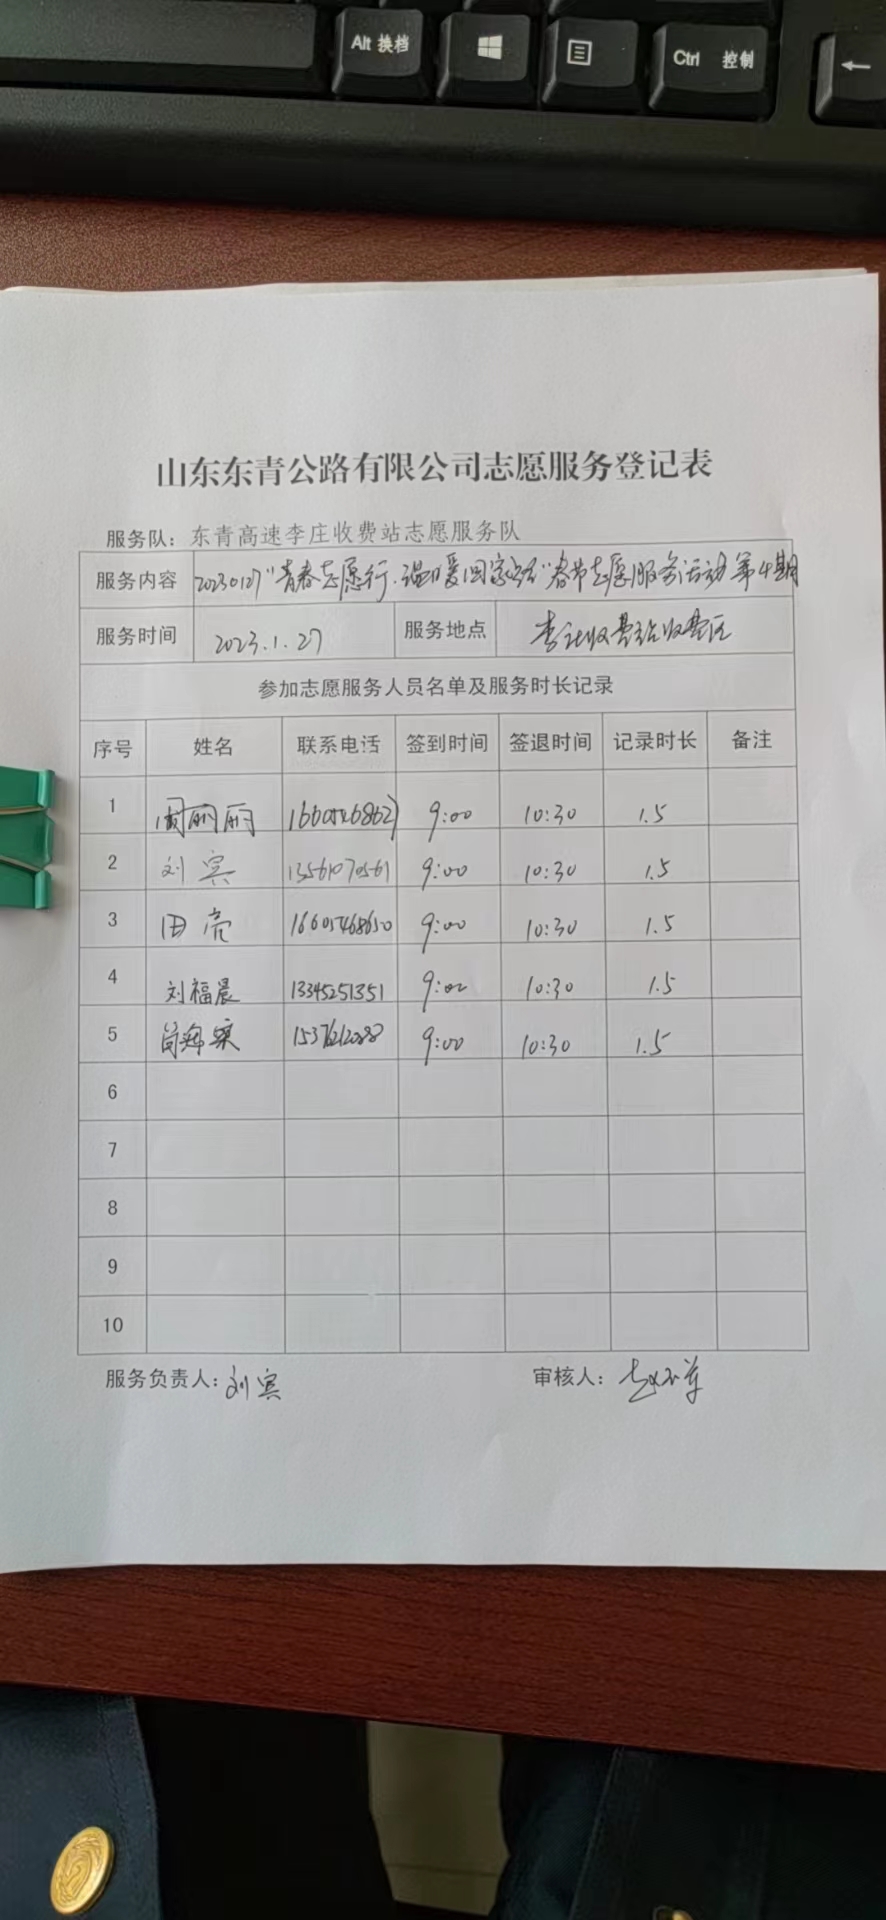 Alt 换档
Ctrl 控制
←
山东东青公路有限公司志愿服务登记表
服务队：东青高速李庄收费站志愿服务队
服务内容 20230127"青春志愿行·温暖回家路"春节志愿服务活动第4期
服务时间 2023.1.27 服务地点 李庄收费站收费区
参加志愿服务人员名单及服务时长记录
序号 姓名 联系电话 签到时间 签退时间 记录时长 备注
1 周丽丽 9:00 10:30 1.5
2 刘宾 13561070561 9:00 10:30 1.5
3 田亮 16605468650 9:00 10:30 1.5
4 刘福晨 13345251351 9:00 10:30 1.5
5 9:00 10:30 1.5
6
7
8
9
10
服务负责人：刘宾 审核人：